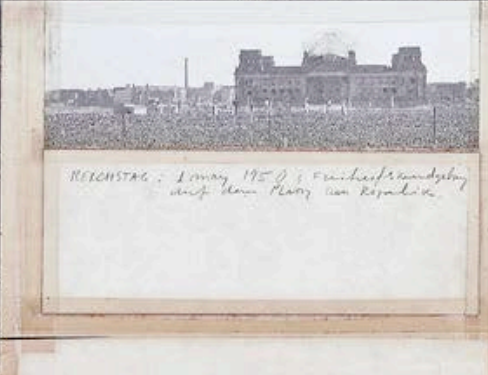 REICHSTAG : 1 may 1950 ; Freiheitskundgebung
auf dem Platz der Republik.